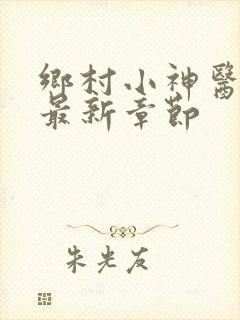 鄉村小神醫
最新章節
朱光友